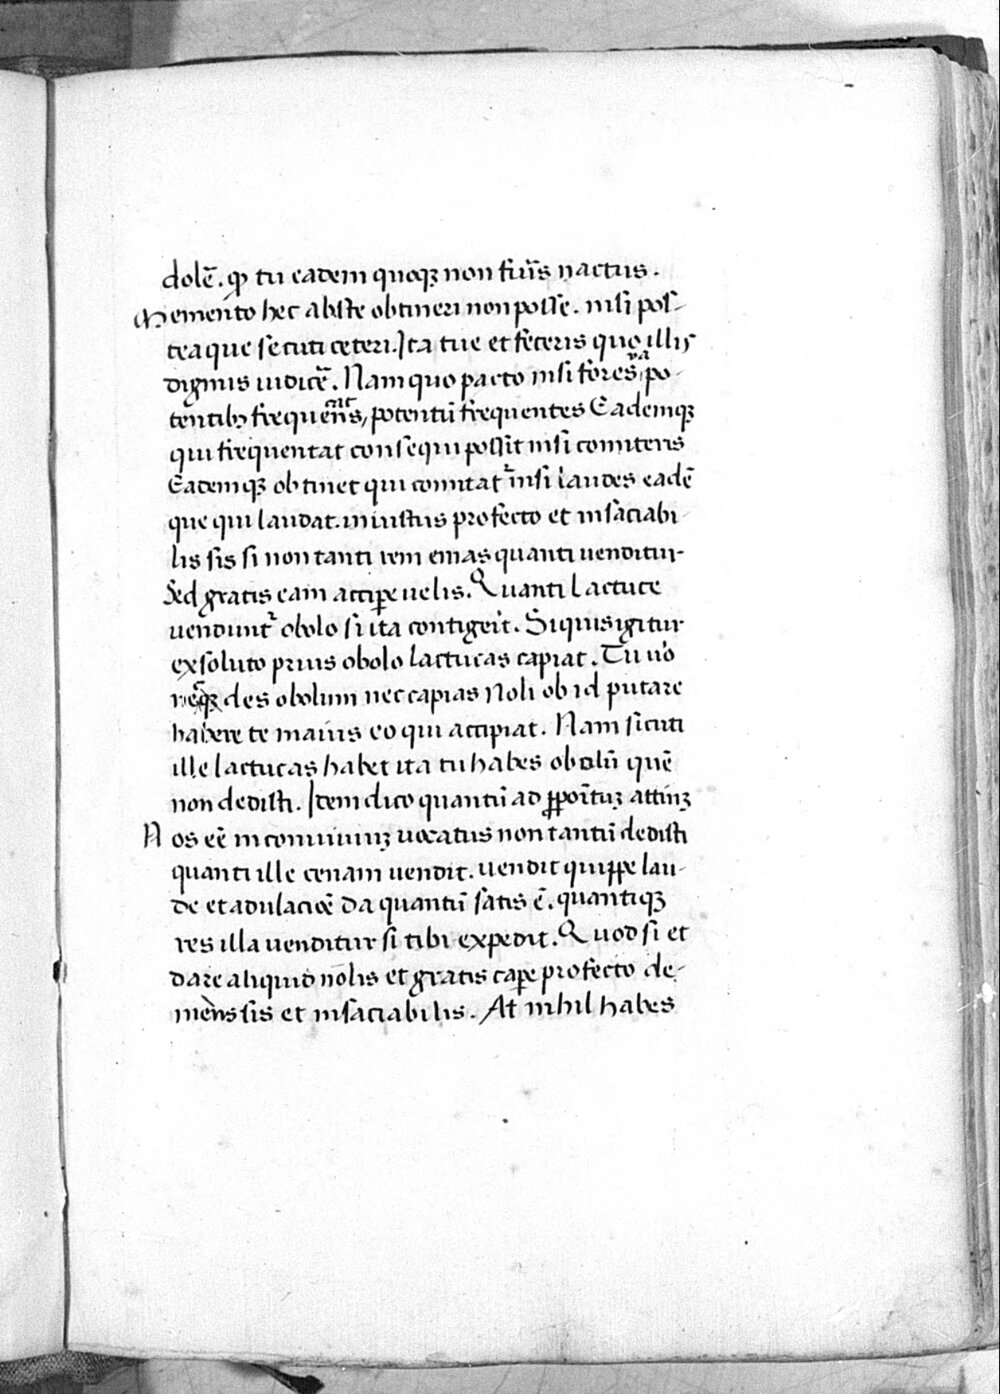 dolē. qꝫ tu eadem quoqꝫ non fuīs nactus.
Memento hec abste obtineri non posse. nisi pos-
tea que secuti ceteri. Ita tue et feceris quo illis
dignus iudicē. Nam quo pacto nisi fores, po-
tentibꝫ frequens, potentū frequentes Eademqꝫ
qui frequentat consequi possīt nisi comiteris
Eademqꝫ obtinet qui comitat nisi laudes eadē
que qui laudat. iniustus profecto et insaciabi-
lis sis si non tanti rem emas quanti uenditur
Sed gratis eam accipe uelis. Quanti lactuce
uendunt obolo si ita contigerit. Siquis igitur
exsoluto prius obolo lactucas capiat. Tu uo
neqꝫ des obolum nec capias Noli ob id putare
habere te maius eo qui accipiat. Nam sicuti
ille lactucas habet ita tu habes obolū quē
non dedisti. Item dico quantū ad attinꝫ
Nos eē in conuiuiuꝫ uocatus non tantū dedisti
quanti ille cenam uendit. uendit quippe lau-
de et adulacioē da quantū satis ē. quantiqꝫ
res illa uenditur si tibi expedit. Quod si et
dare aliquid nolis et gratis cape profecto de-
mens sis et insaciabilis. At nihil habes